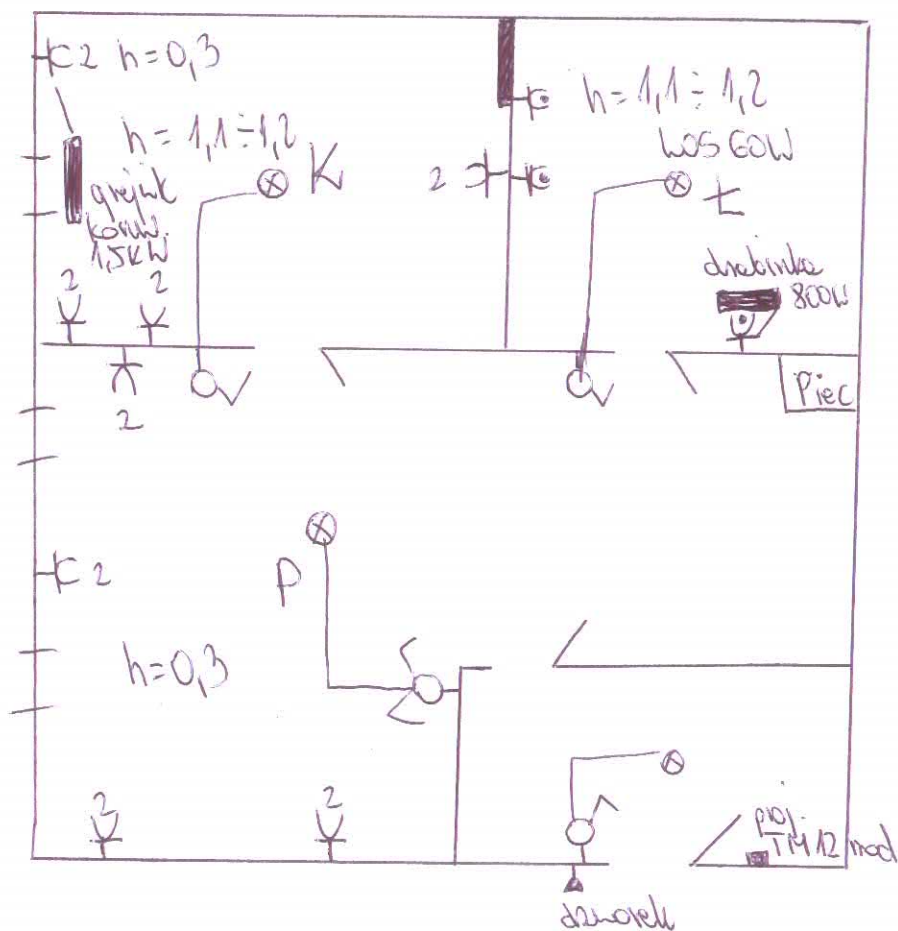 2 h=0,3
h=1,1÷1,2
grejnik
konw.
1,5KW
K
2 2
2
h=1,1÷1,2
WOS 60W
Ł
2
drabinka
800W
Piec
P
2
h=0,3
2 2
proj.
TM 12 mod
dzwonek